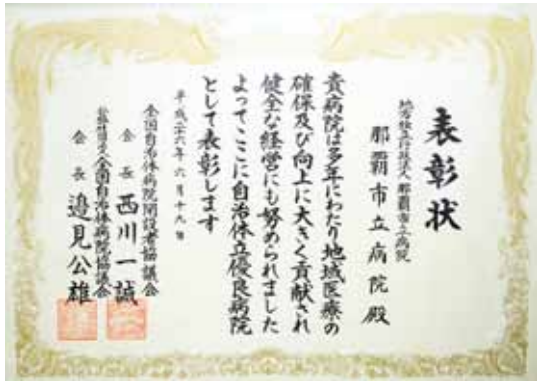 表彰状
地方独立行政法人 那覇市立病院
那覇市立病院殿
貴病院は多年にわたり地域医療の
確保及び向上に大きく貢献され
健全な経営にも努められました
よってここに自治体立優良病院
として表彰します
平成二十六年六月十九日
全国自治体病院開設者協議会
会長 西川一誠
公益社団法人全国自治体病院協議会
会長 邉見公雄